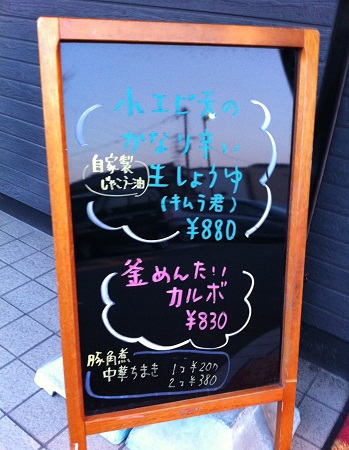 小エビ天の
かなり辛い
自家製
じゃこラー油
生しょうゆ
(キムラ君)
¥880
釜めんた!!
カルボ
¥830
豚角煮
中華ちまき
1コ ¥200
2コ ¥380